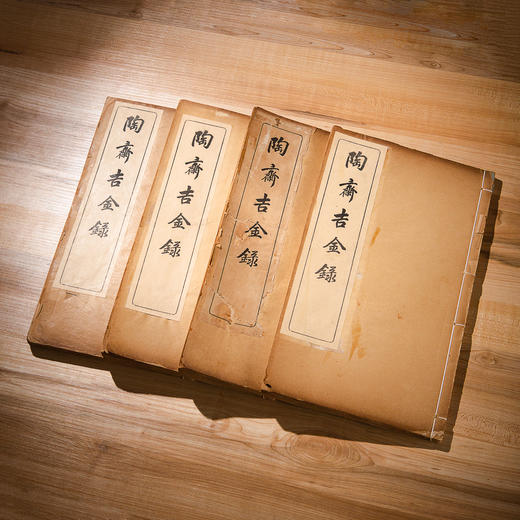 陶齋吉金錄
陶齋吉金錄
陶齋吉金錄
陶齋吉金錄